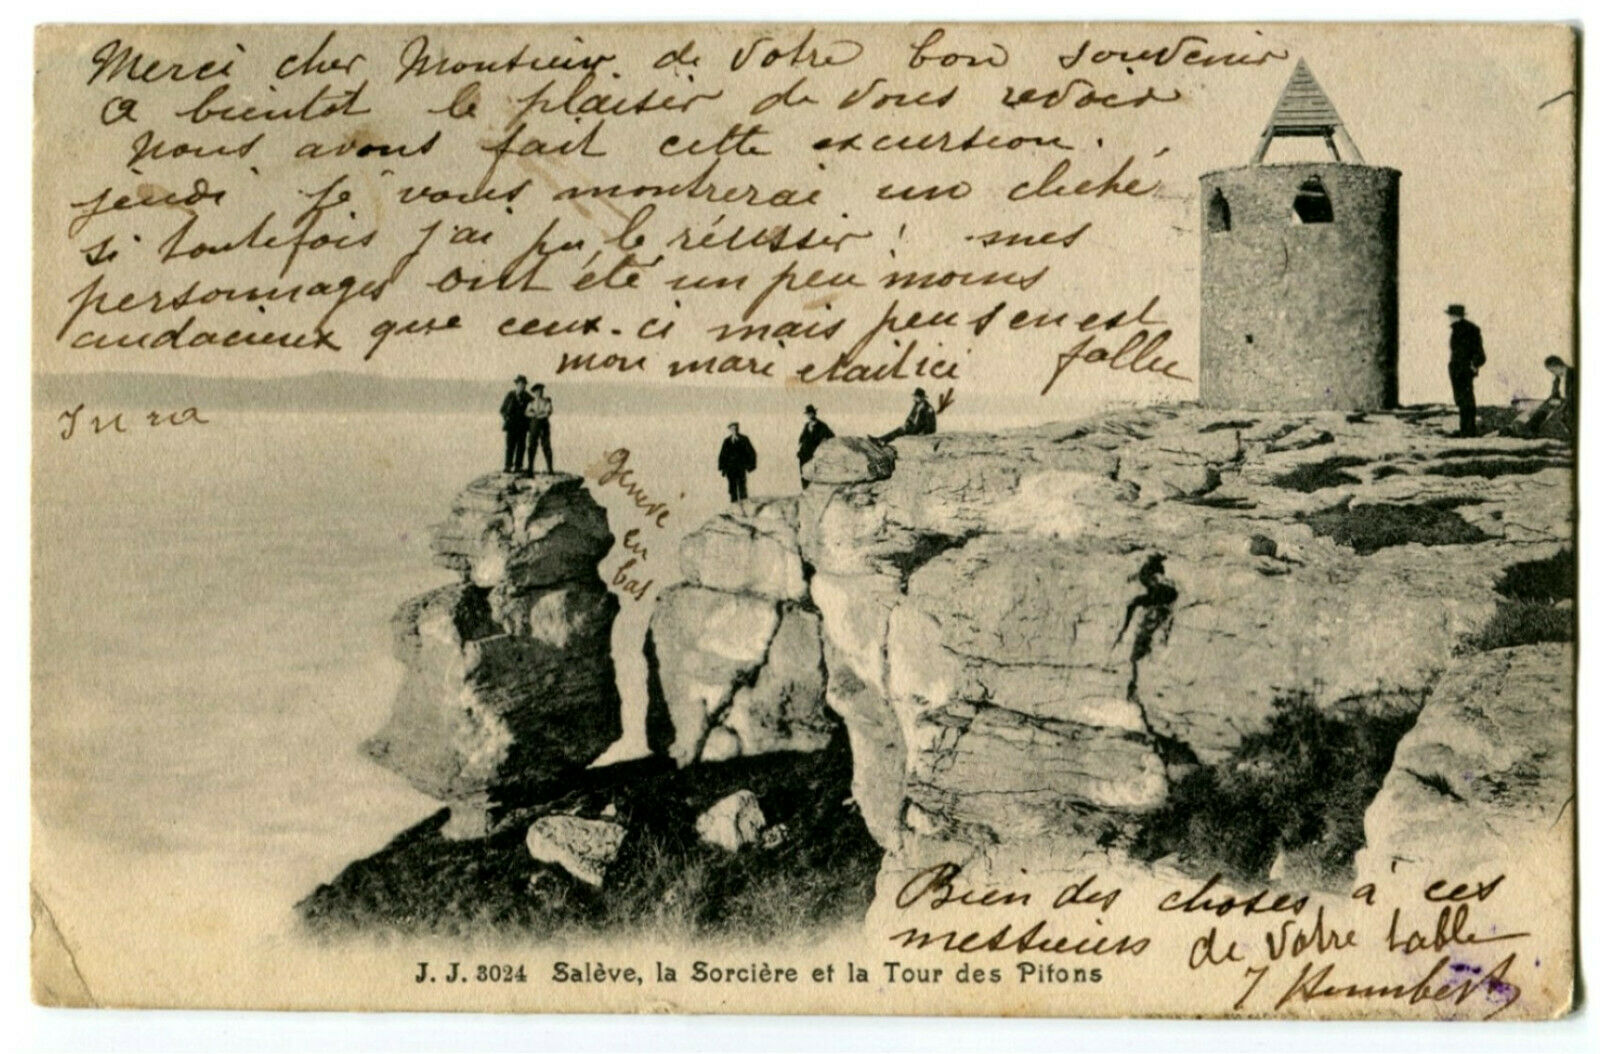 Merci cher Monsieur de votre bon souvenir
a bientot le plaisir de vous revoir
nous avons fait cette excursion.
jeudi je vous montrerai un cliché
si toutefois j'ai pu le réussir! mes
personnages ont été un peu moins
audacieux que ceux-ci mais peu s'en est
fallu
mon mari etait ici
Jura
Genève
en
bas
Bien des choses à ces
messieurs de votre table
J Humbert
J. J. 3024 Salève, la Sorcière et la Tour des Pitons